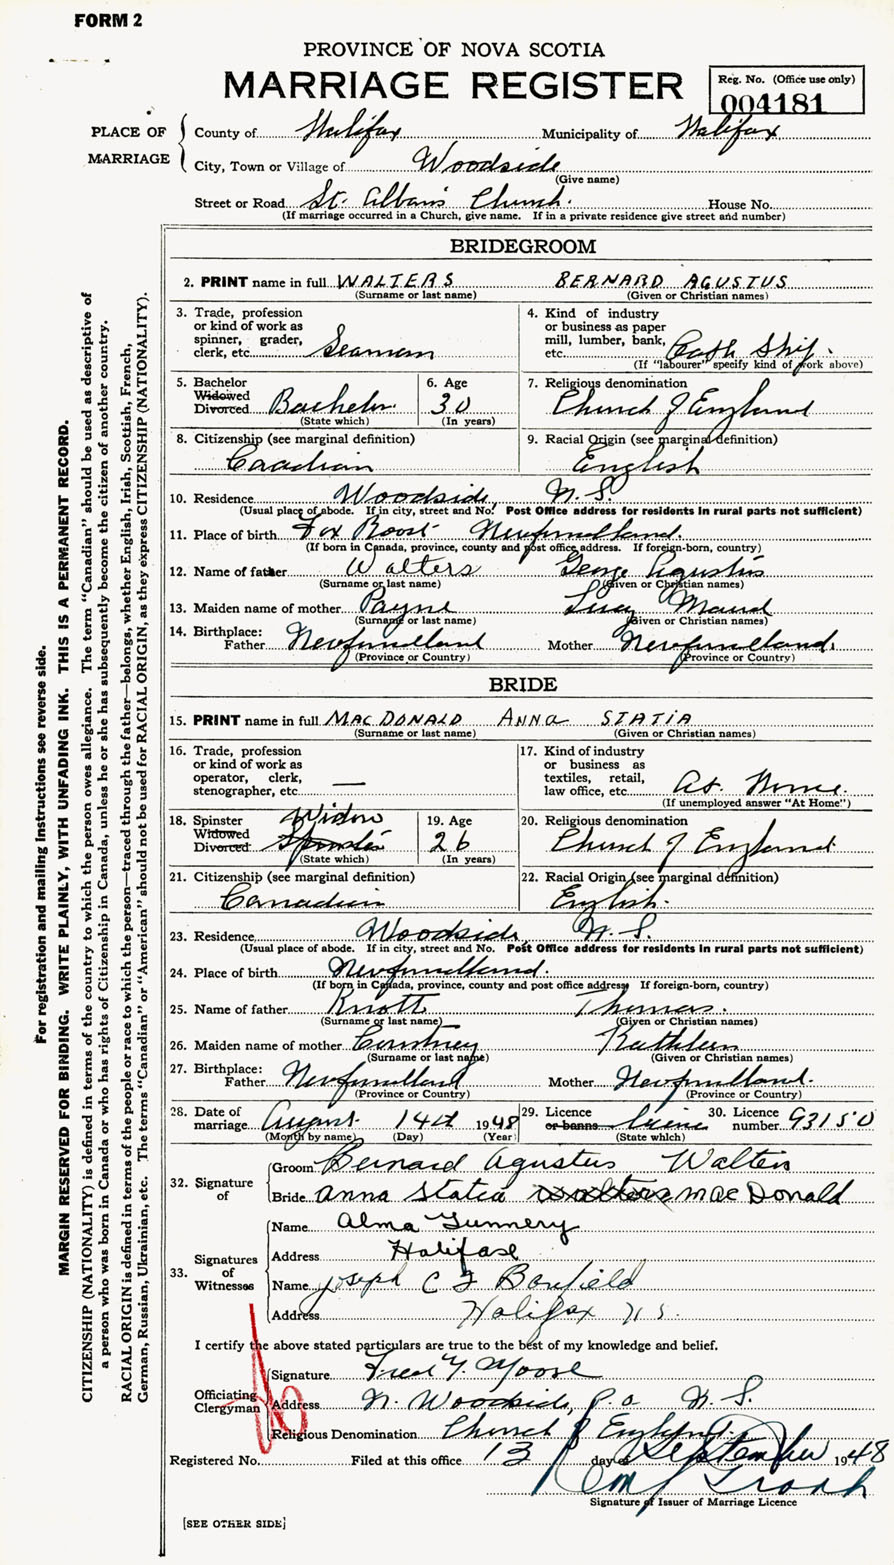 FORM 2
PROVINCE OF NOVA SCOTIA
MARRIAGE REGISTER
Reg. No. (Office use only)
004181
PLACE OF MARRIAGE
County of Halifax Municipality of Halifax
City, Town or Village of Woodside
(Give name)
Street or Road St. Albans Church. House No.
(If marriage occurred in a Church, give name. If in a private residence give street and number)
BRIDEGROOM
2. PRINT name in full WALTERS BERNARD AGUSTUS
(Surname or last name) (Given or Christian names)
3. Trade, profession or kind of work as spinner, grader, clerk, etc. Seaman
4. Kind of industry or business as paper mill, lumber, bank, etc. Ship.
(If "labourer" specify kind of work above)
5. Bachelor Widowed Divorced Bachelor
(State which)
6. Age 30
(In years)
7. Religious denomination Church of England
8. Citizenship (see marginal definition) Caadian
9. Racial Origin (see marginal definition) English
10. Residence Woodside, N.S.
(Usual place of abode. If in city, street and No. Post Office address for residents in rural parts not sufficient)
11. Place of birth Fox Roost Newfoundland.
(If born in Canada, province, county and post office address. If foreign-born, country)
12. Name of father Walters George Agustus
(Surname or last name) (Given or Christian names)
13. Maiden name of mother Payne Lucy Maud
(Surname or last name) (Given or Christian names)
14. Birthplace: Father Newfoundland Mother Newfoundland.
(Province or Country) (Province or Country)
BRIDE
15. PRINT name in full MACDONALD ANNA STATIA
(Surname or last name) (Given or Christian names)
16. Trade, profession or kind of work as operator, clerk, stenographer, etc. —
17. Kind of industry or business as textiles, retail, law office, etc. At Home.
(If unemployed answer "At Home")
18. Spinster Widowed Divorced Widow Spinster
(State which)
19. Age 26
(In years)
20. Religious denomination Church of England
21. Citizenship (see marginal definition) Canadian
22. Racial Origin (see marginal definition) English.
23. Residence Woodside, N.S.
(Usual place of abode. If in city, street and No. Post Office address for residents in rural parts not sufficient)
24. Place of birth Newfoundland.
(If born in Canada, province, county and post office address If foreign-born, country)
25. Name of father Knott Thomas.
(Surname or last name) (Given or Christian names)
26. Maiden name of mother Courtney Kathleen
(Surname or last name) (Given or Christian names)
27. Birthplace: Father Newfoundland Mother Newfoundland.
(Province or Country) (Province or Country)
28. Date of marriage August 14th 1948
(Month by name) (Day) (Year)
29. Licence or banns
(State which)
30. Licence number 93150
32. Signature of
Groom Bernard Agustus Walters
Bride Anna Statia Walters MacDonald
33. Signatures of Witnesses
Name Alma
Address Halifax
Name Joseph C Bonfield
Address Halifax N S.
I certify the above stated particulars are true to the best of my knowledge and belief.
Officiating Clergyman
Signature Fred Y. Moore
Address N. Woodside, P.O. N.S.
Religious Denomination Church of England.
Registered No. Filed at this office 13 day of September 1948
Signature of Issuer of Marriage Licence
[SEE OTHER SIDE]
For registration and mailing instructions see reverse side.
MARGIN RESERVED FOR BINDING. WRITE PLAINLY, WITH UNFADING INK. THIS IS A PERMANENT RECORD.
CITIZENSHIP (NATIONALITY) is defined in terms of the country to which the person owes allegiance. The term "Canadian" should be used as descriptive of
a person who was born in Canada or who has rights of Citizenship in Canada, unless he or she has subsequently become the citizen of another country.
RACIAL ORIGIN is defined in terms of the people or race to which the person—traced through the father—belongs, whether English, Irish, Scottish, French,
German, Russian, Ukrainian, etc. The terms "Canadian" or "American" should not be used for RACIAL ORIGIN, as they express CITIZENSHIP (NATIONALITY).